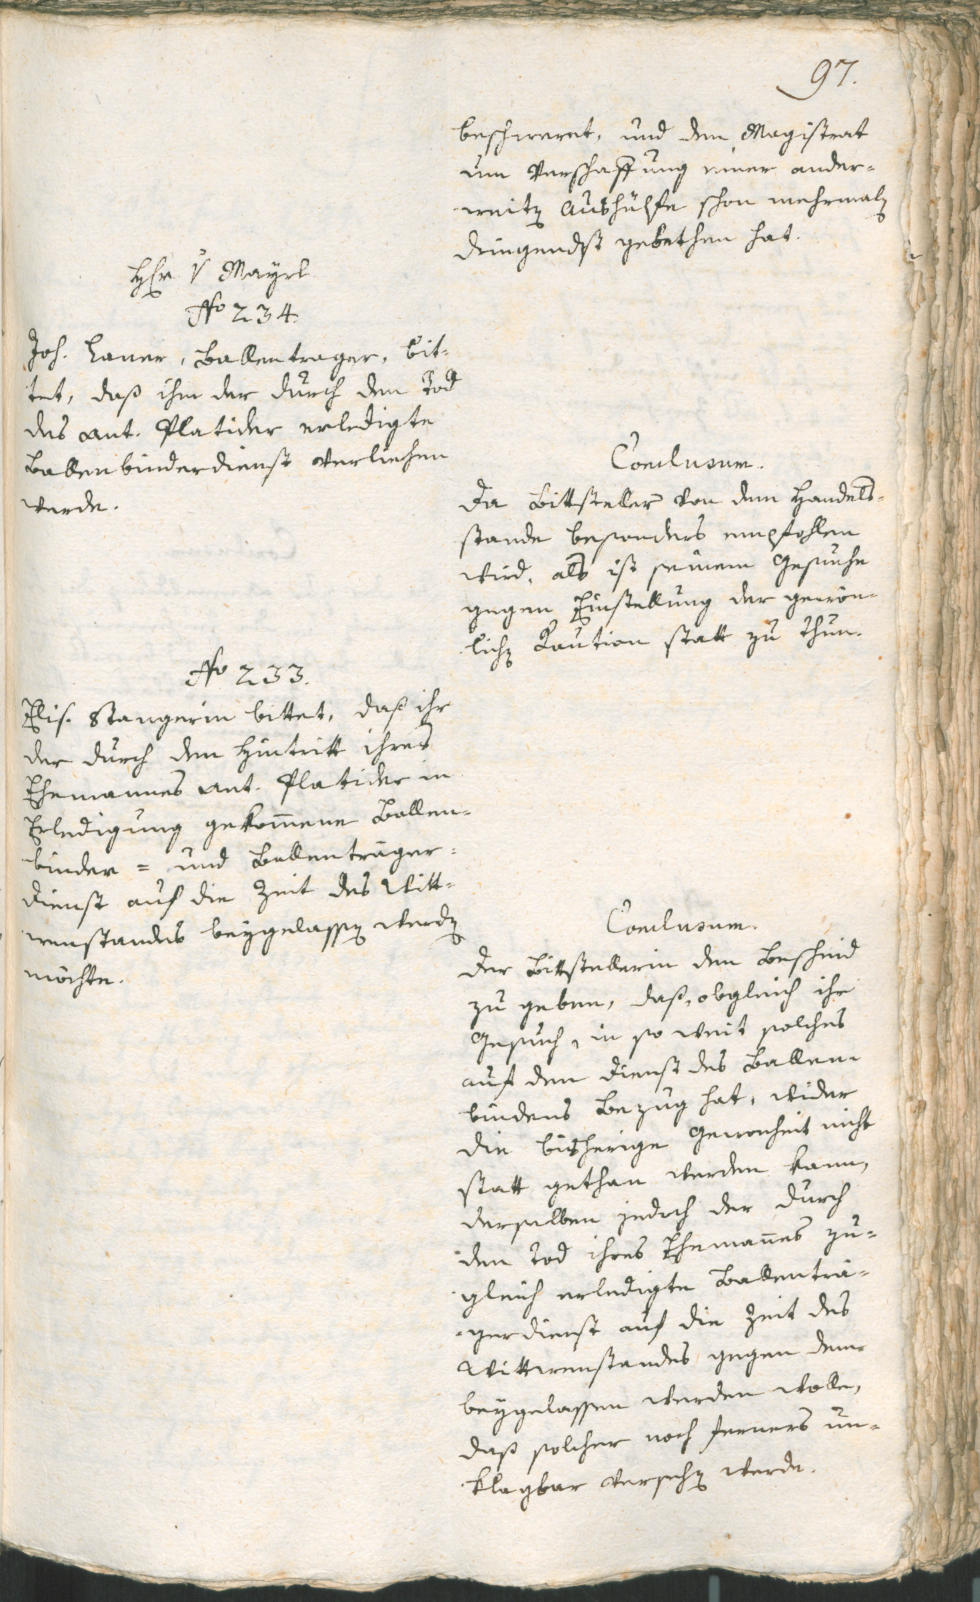 97.
beschweret, und den Magistrat
um Verschaffung einer ander-
weitig Aushülfe schon mehrmalg
dringendst gebethen hat.
Hr. v Mayrl
No 234.
Joh. Laner, Ballentrager, bit-
tet, daß ihm der durch den Tod
des Ant. Platider erledigte
Ballenbinderdienst verliehen
werde.
Conclusum.
Da Bittsteller von dem Handels-
stande besonders empfohlen
wird, als ist seinem Gesuche
gegen Einstellung der gewön-
lichen Kaution statt zu thun.
No 233.
Elis. Stangerin bittet, daß ihr
der durch den Hintritt ihres
Ehemannes Ant. Platider in
Erledigung gekom̄ene Ballen-
binder- und Ballenträger-
dienst auf die Zeit des Witt-
wenstandes beygelassen werden
möchte.
Conclusum.
Der Bittstellerin den Bescheid
zu geben, daß, obgleich ihr
Gesuch, in so weit solches
auf den Dienst des Ballen-
bindens Bezug hat, wider
die bisherige Gewonheit nicht
statt gethan werden kann,
derselben jedoch der durch
den Tod ihres Eheman̄es zu-
gleich erledigte Ballenträ-
gerdienst auf die Zeit des
Wittwenstandes gegen dem
beygelassen werden wolle,
daß solcher noch ferners un-
klagbar versehen werde.